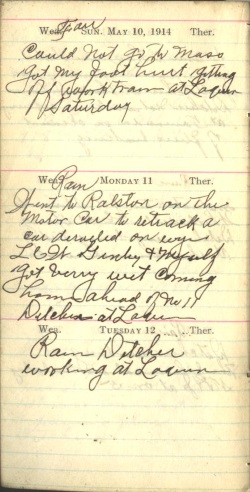 Wea. Fair SUN. MAY 10, 1914 Ther.
Could Not go to Mass
Got My foot hurt getting
off work train at Laquin
Saturday
Wea. Rain MONDAY 11 Ther.
Went to Ralston on the
Motor Car to retrack a
car derailed on
L & Myself
Got verry wet coming
home ahead of No 11
Ditcher at Laquin
Wea. TUESDAY 12 Ther.
Rain Ditcher
working at Laquin